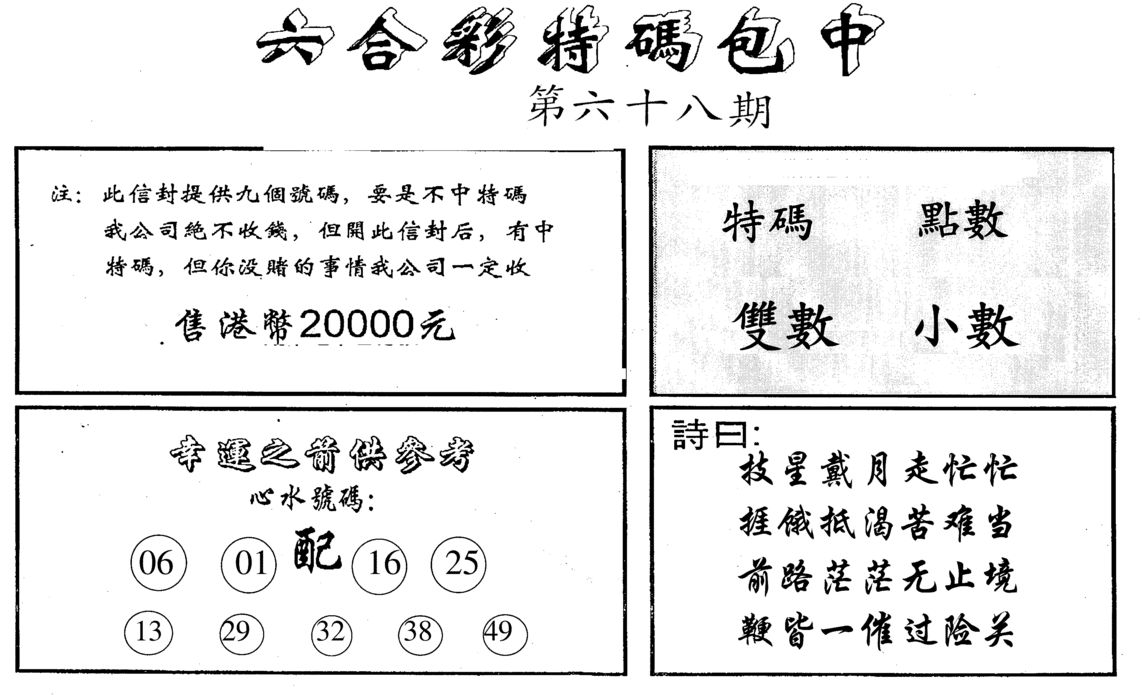 六合彩特碼包中
第六十八期
注：此信封提供九個號碼，要是不中特碼
我公司絶不收錢，但開此信封后，有中
特碼，但你没賭的事情我公司一定收
售港幣20000元
特碼 點數
雙數 小數
幸運之箭供參考
心水號碼：
06 01 配 16 25
13 29 32 38 49
詩曰：
技星戴月走忙忙
捱饿抵渴苦难当
前路茫茫无止境
鞭皆一催过险关